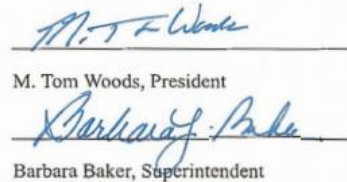 M. T Woods
M. Tom Woods, President
Barbara J. Baker
Barbara Baker, Superintendent